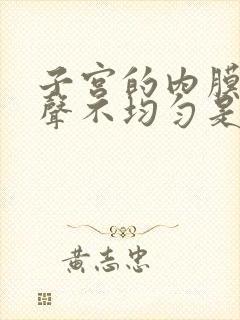 子宫的内膜
聲不均匀是
黄志忠